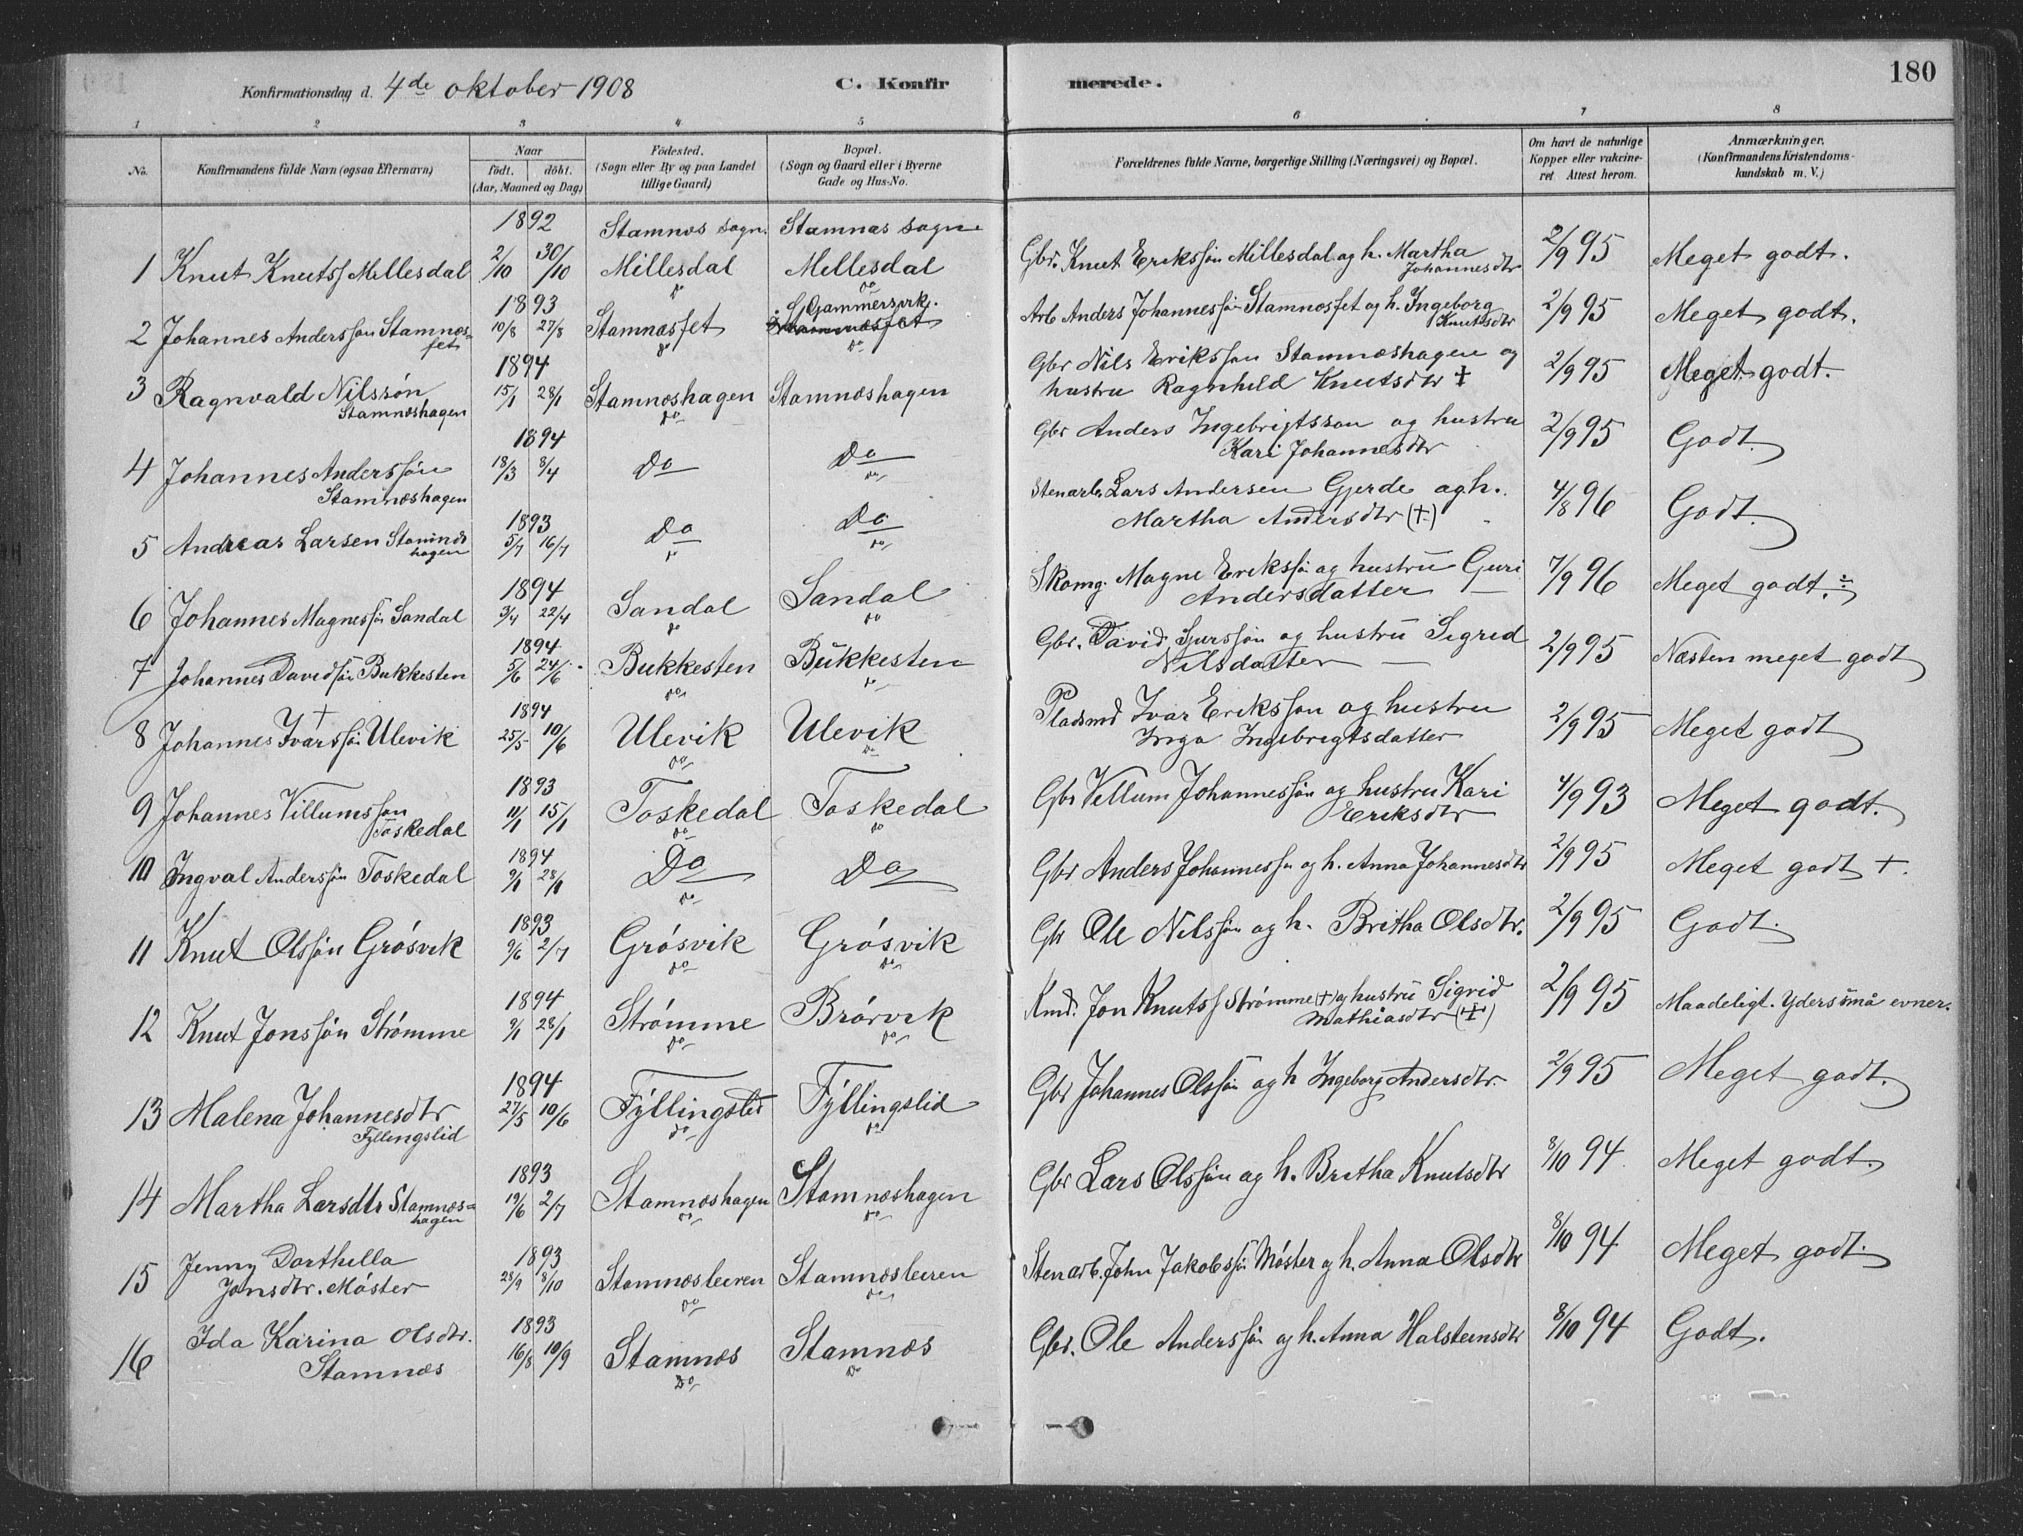 180
Konfirmationsdag d. 4de oktober 1908 C. Konfir merede.
1 2 3 4 5 6 7 8
No. Konfirmandens fulde Navn (ogsaa Efternavn) Naar födt. döbt. (Aar, Maaned og Dag) Födested. (Sogn eller By og paa Landet tillige Gaard) Bopæl. (Sogn og Gaard eller i Byerne Gade og Hus-No. Forældrenes fulde Navne, borgerlige Stilling (Næringsvei) og Bopæl. Om havt de naturlige Kopper eller vakcineret. Attest herom. Anmærkninger. (Konfirmandens Kristendomskundskab m. V.)
1892 Stamnes sogn. Stamnæs sogn
1 Knut Knutss Millesdal 2/10 30/10 Millesdal do Millesdal do Gbr. Knut Erikssøn Millesdal og h. Martha Johannesdtr 2/9 95 Meget godt.
1893
2 Johannes Anderssøn Stamnæsfet 10/8 27/8 Stamnæsfet do Gammersvik. Stamnæsfet do Arb Anders Johannessøn Stamnæsfet og h. Ingeborg Knutsdtr 2/9 95 Meget godt.
1894
3 Ragnvald Nilssøn Stamnæshagen 15/1 28/1 Stamnæshagen do Stamnæshagen Gbr Nils Erikssøn Stamnæshagen og hustru Ragnhild Knutsdtr + 2/9 95 Meget godt.
1894
4 Johannes Anderssøn Stamnæshagen 18/3 8/4 Do Do do Gbr Anders Ingebrigtsson og hustru Kari Johannesdtr 2/9 95 Godt.
1893
5 Andreas Larsen Stamnæshagen 5/7 16/7 Do do Do do Stenarb. Lars Andersen Gjerde og h. Martha Andersdtr (+) 4/8 96 Godt.
1894
6 Johannes Magnessøn Sandal 3/4 22/4 Sandal do Sandal do Skomg. Magne Erikssøn og hustru Guri Andersdatter 7/9 96 Meget godt. ÷
1894
7 Johannes Davidssøn Bukkesten 5/6 24/6 Bukkesten do Bukkesten do Gbr. David Sjurssøn og hustru Sigrid Nilsdatter 2/9 95 Næsten meget godt
1894
8 Johannes Ivarssøn Ulevik + 25/5 10/6 Ulevik do Ulevik do Pladsmd Ivar Erikssøn og hustru Inga Ingebrigtsdatter 2/9 95 Meget godt
1893
9 Johannes Villumssøn Toskedal 11/1 15/1 Toskedal do Toskedal do Gbr Villum Johannessøn og hustru Kari Eriksdtr 4/9 93 Meget godt.
1894
10 Ingval Anderssøn Toskedal 9/1 28/1 Do do Do Gbr. Anders Johannessøn og h. Anna Johannesdtr 2/9 95 Meget godt +.
1893
11 Knut Olssøn Grósvik 9/6 2/7 Grósvik do Grósvik do Gbr Ole Nilssøn og h. Britha Olsdtr. 2/9 95 Godt.
1894
12 Knut Jonssøn Strømme 9/1 28/1 Strømme do Brørvik do Kmd. Jon Knutss Strømme (+) og hustru Sigrid Mathiasdtr (+) 2/9 95 Maadeligt. Yders små evner.
1894
13 Malena Johannesdtr Fyllingslid 27/5 10/6 Fyllingslid do Fyllingslid do Gbr Johannes Olssøn og h Ingeborg Andersdtr. 2/9 95 Meget godt.
1893
14 Martha Larsdtr Stamnæshagen 19/6 2/7 Stamnæshagen do Stamnæshagen do Gbr Lars Olssøn og h. Britha Knutsdtr 8/10 94. Meget godt.
1893
15 Jenny Dorthella Jonsdtr. Møster 28/9 8/10 Stamnæsleeren do Stamnæsleeren do Stenarb. John Jakobssøn Møster og h. Anna Olsdtr 8/10 94 Meget godt.
1893
16 Ida Karina Olsdtr. Stamnæs 16/8 10/9 Stamnæs Do Stamnæs Do Gbr. Ole Anderssøn og h. Anna Halsteinsdtr 8/10 94 Godt.